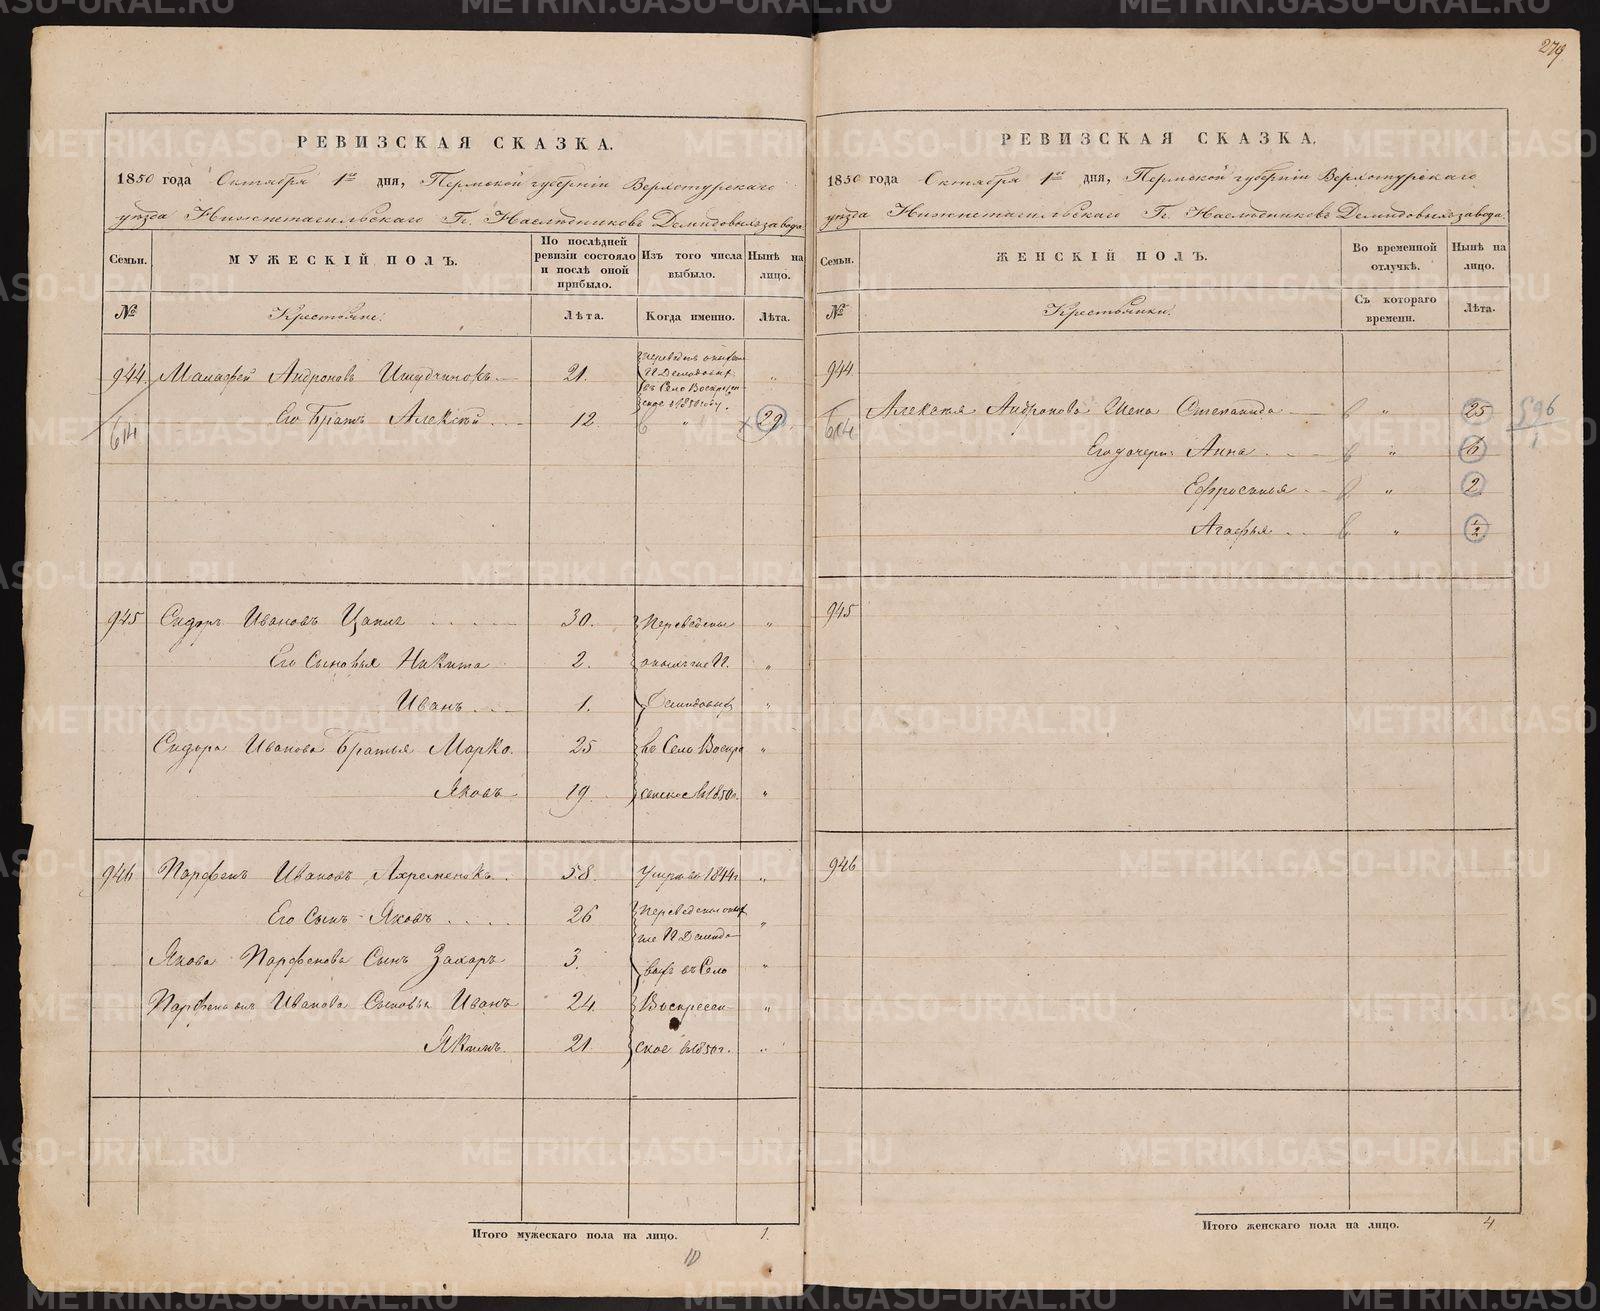 279
РЕВИЗСКАЯ СКАЗКА.
1850 года Октября 1го дня, Пермской губерніи Верхотурскаго
уѣзда Нижнетагильскаго Гг. Наслѣдниковъ Демидовыхъ завода
Семьи.
МУЖЕСКІЙ ПОЛЪ.
По послѣдней ревизіи состояло и послѣ оной прибыло.
Изъ того числа выбыло.
Нынѣ на лицо.
№
Крестьяне.
Лѣта.
Когда именно.
Лѣта.
944. Малафей Андроновъ 21. "
Переведенъ
въ Село Воскресен-
ское в 1850 году.
614
Его Братъ Алексѣй 12 " 29
945 Сидоръ Ивановъ Цапиг 30. Переведены "
Его Сыновья Никита 2. П. "
Иванъ 1. Демидовых "
Сидора Иванова Братья Марко. 25 въ Село Воскре "
Яковъ 19. сенское в 1850 г. "
946 Парфенъ Ивановъ Яхременокъ. 58. Умръ въ 1844 г "
Его Сынъ Яковъ 26 Переведены "
П Демидо
Якова Парфенова Сынъ Захаръ 3. выхъ въ Село "
Парфена Иванова Сыновья Иванъ 24. Воскресен- "
Якимъ. 21. ское в 1850 г. "
Итого мужескаго пола на лицо. 1.
10
РЕВИЗСКАЯ СКАЗКА.
1850 года Октября 1го дня, Пермской губерніи Верхотурскаго
уѣзда Нижнетагильскаго Гг. Наслѣдниковъ Демидовыхъ завода.
Семьи.
ЖЕНСКІЙ ПОЛЪ.
Во временной отлучкѣ.
Нынѣ на лицо.
№
Крестьянки.
Съ котораго времени.
Лѣта.
944
614
Алексѣя Андронова Жена Степанида " 25
596
1
Его дочери: Анна " 6
Ефросинья " 2
Агафья " 1/2
945
946
Итого женскаго пола на лицо. 4
METRIKI.GASO-URAL.RU